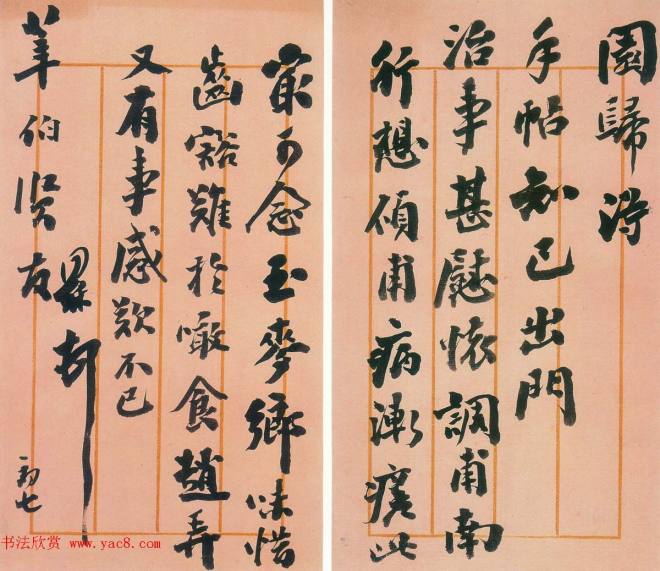 園歸得
手帖知已出門
治事甚慰懷調甫南
行想甫病漸瘥此
最可念玉麥鄉味惜
齒豁難於噉食趙弄
又有事感歎不已
莘伯賢友
初七
书法欣赏 www.yac8.com